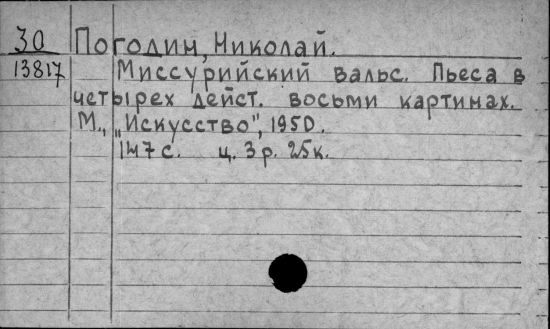 30 Погодин, Николай.
13817 Миссурийский вальс. Пьеса в
четырех дейст. восьми картинах.
М., „Искусство", 1950.
147 с. ц. 3 р. 25 к.